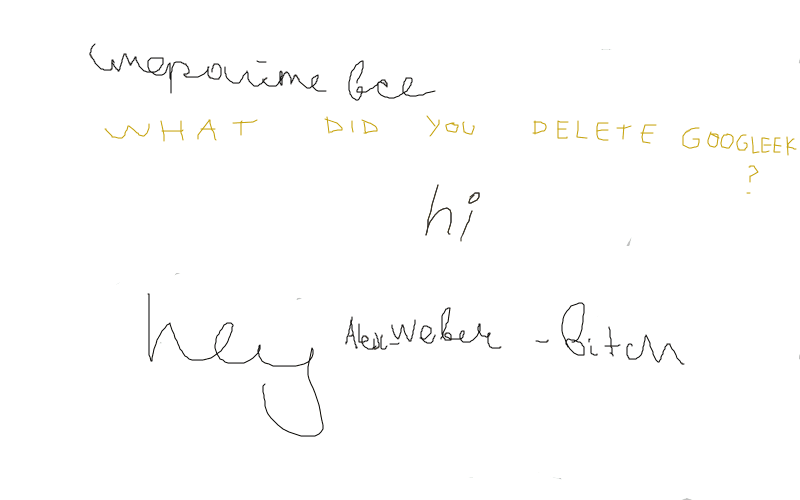 стирайте все
WHAT DID YOU DELETE GOOGLEEK
?
hi
hey Alex_Weber - Bitch